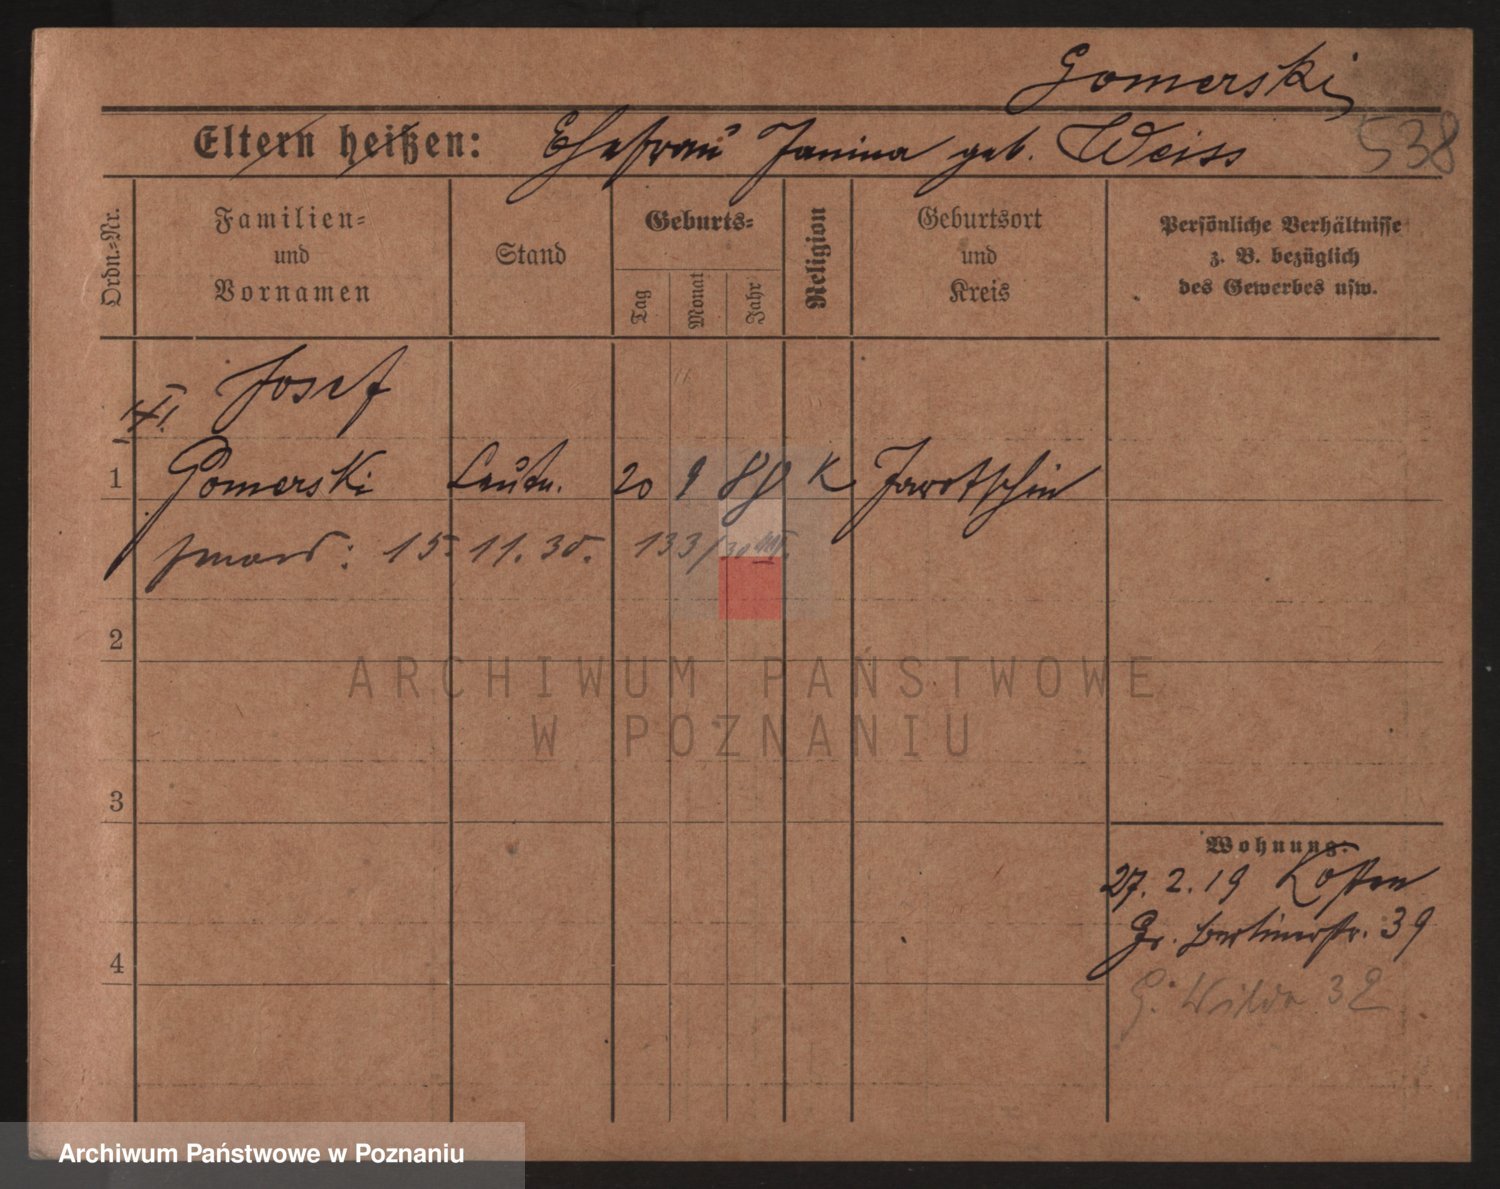 Gomerski
538
Eltern heißen: Ehefrau Janina geb. Weiss
Ordn.=Nr.
Familien=
und
Vornamen
Stand
Geburts=
Tag
Monat
Jahr
Religion
Geburtsort
und
Kreis
Persönliche Verhältnisse
z. B. bezüglich
des Gewerbes usw.
Josef
1 Gomerski Leutn. 20 9 89 K Jarotschin
zmarł: 15. 11. 30. 133/30
2
3
4
Wohnung.
27. 2. 19 Kosten
Gr. Berlinerstr. 39
G. Wilda 32
ARCHIWUM PAŃSTWOWE
W POZNANIU
Archiwum Państwowe w Poznaniu